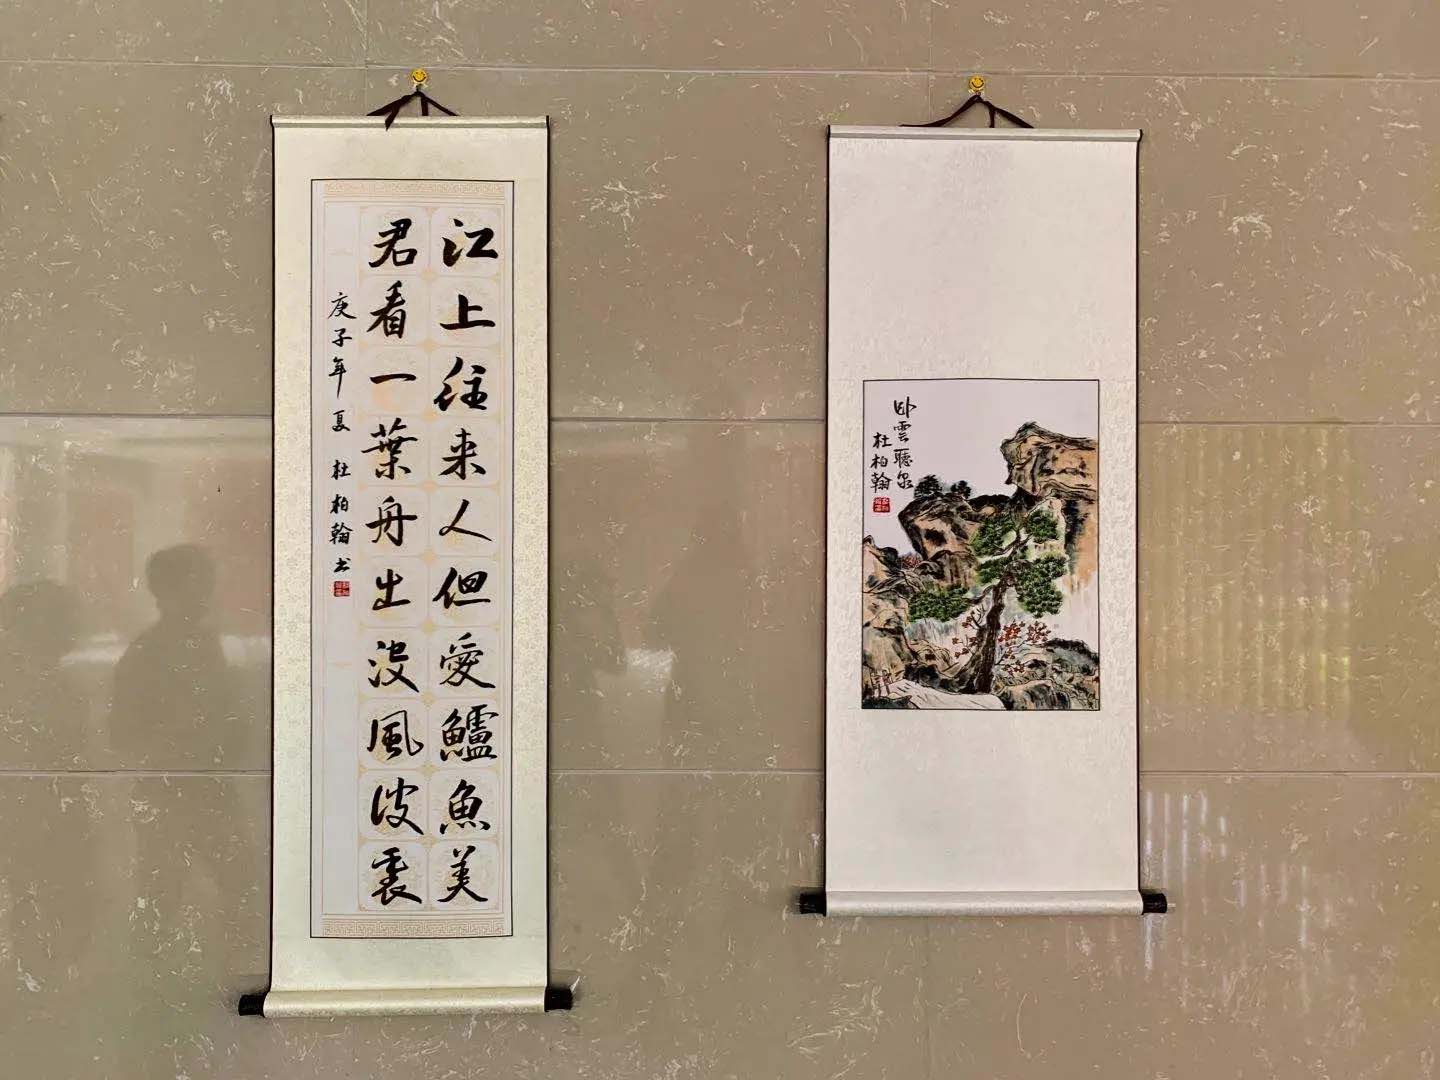 江上往来人但愛鱸魚美
君看一葉舟出没風波裏
庚子年夏 杜柏翰书
卧雲聽泉
杜柏翰